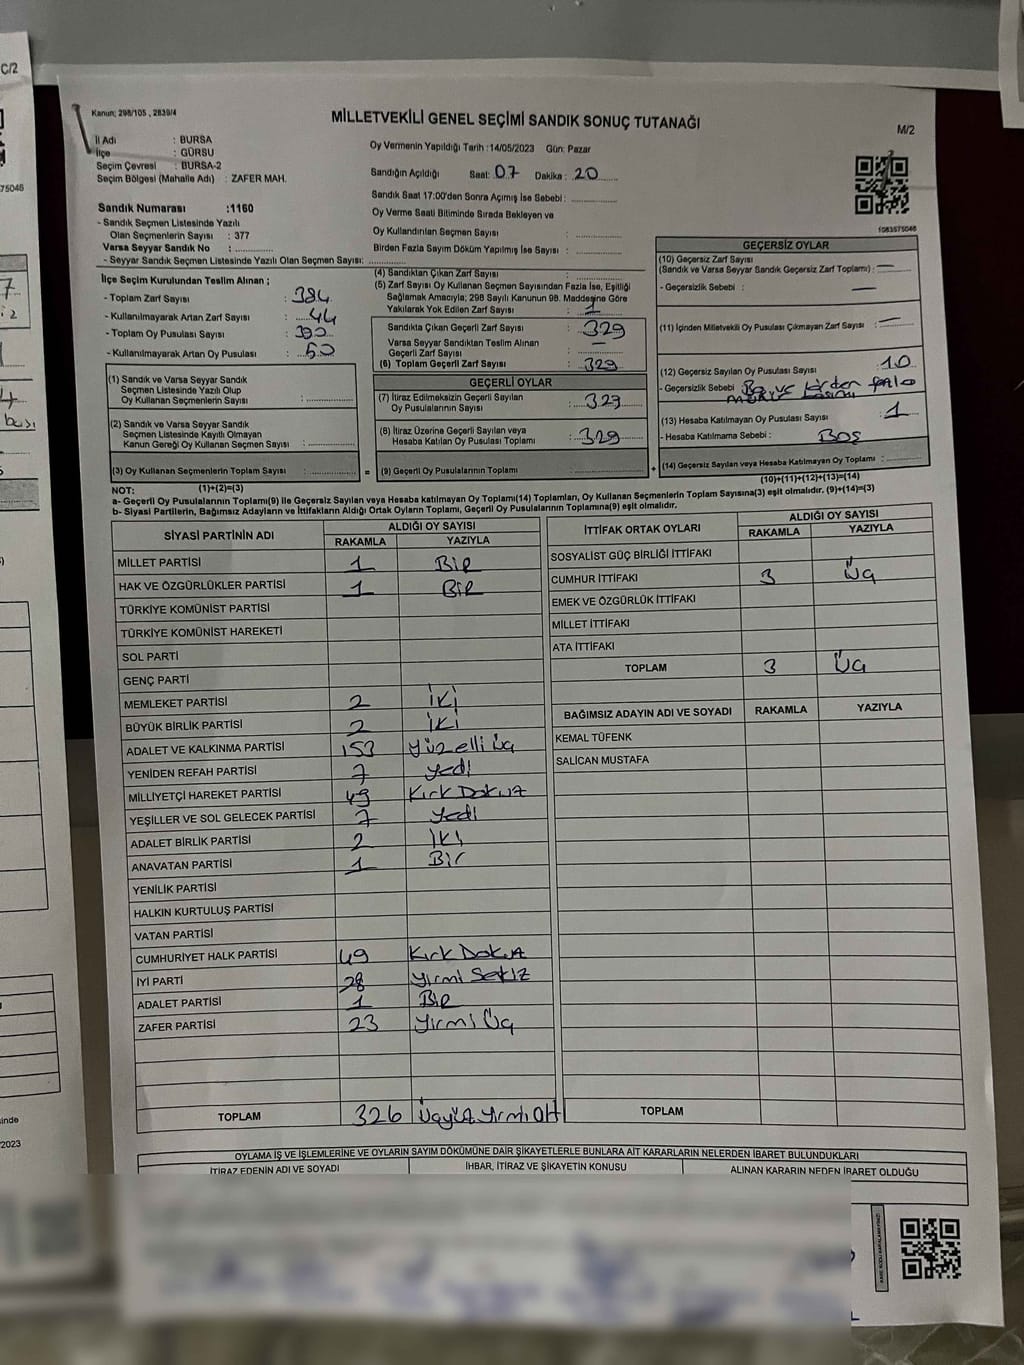 C/2
75046
Kanun; 298/105 , 2839/4
MİLLETVEKİLİ GENEL SEÇİMİ SANDIK SONUÇ TUTANAĞI
M/2
İl Adı : BURSA
İlçe : GÜRSU
Seçim Çevresi : BURSA-2
Seçim Bölgesi (Mahalle Adı) : ZAFER MAH.
Oy Vermenin Yapıldığı Tarih :14/05/2023 Gün: Pazar
Sandığın Açıldığı Saat: 07 Dakika : 20
Sandık Saat 17:00'den Sonra Açımış İse Sebebi :
Oy Verme Saati Bitiminde Sırada Bekleyen ve
Oy Kullandırılan Seçmen Sayısı :
Birden Fazla Sayım Döküm Yapılmış İse Sayısı :
1083575046
Sandık Numarası :1160
- Sandık Seçmen Listesinde Yazılı
Olan Seçmenlerin Sayısı : 377
Varsa Seyyar Sandık No :
- Seyyar Sandık Seçmen Listesinde Yazılı Olan Seçmen Sayısı:
İlçe Seçim Kurulundan Teslim Alınan ;
- Toplam Zarf Sayısı : 384
- Kullanılmayarak Artan Zarf Sayısı : 44
- Toplam Oy Pusulası Sayısı : 390
- Kullanılmayarak Artan Oy Pusulası : 50
(1) Sandık ve Varsa Seyyar Sandık
Seçmen Listesinde Yazılı Olup
Oy Kullanan Seçmenlerin Sayısı :
(2) Sandık ve Varsa Seyyar Sandık
Seçmen Listesinde Kayıtlı Olmayan
Kanun Gereği Oy Kullanan Seçmen Sayısı :
(3) Oy Kullanan Seçmenlerin Toplam Sayısı :
(4) Sandıktan Çıkan Zarf Sayısı :
(5) Zarf Sayısı Oy Kullanan Seçmen Sayısından Fazla İse, Eşitliği
Sağlamak Amacıyla; 298 Sayılı Kanunun 98. Maddesine Göre
Yakılarak Yok Edilen Zarf Sayısı : 1
Sandıkta Çıkan Geçerli Zarf Sayısı : 329
Varsa Seyyar Sandıktan Teslim Alınan
Geçerli Zarf Sayısı : —
(6) Toplam Geçerli Zarf Sayısı : 329
GEÇERLİ OYLAR
(7) İtiraz Edilmeksizin Geçerli Sayılan
Oy Pusulalarının Sayısı : 329
(8) İtiraz Üzerine Geçerli Sayılan veya
Hesaba Katılan Oy Pusulası Toplamı : 329
= (9) Geçerli Oy Pusulalarının Toplamı :
GEÇERSİZ OYLAR
(10) Geçersiz Zarf Sayısı
(Sandık ve Varsa Seyyar Sandık Geçersiz Zarf Toplamı) : —
- Geçersizlik Sebebi : —
(11) İçinden Milletvekili Oy Pusulası Çıkmayan Zarf Sayısı : —
(12) Geçersiz Sayılan Oy Pusulası Sayısı : 10
- Geçersizlik Sebebi birden fazla
(13) Hesaba Katılmayan Oy Pusulası Sayısı : 1
- Hesaba Katılmama Sebebi : BOŞ
+ (14) Geçersiz Sayılan veya Hesaba Katılmayan Oy Toplamı :
NOT: (1)+(2)=(3)
(10)+(11)+(12)+(13)=(14)
a- Geçerli Oy Pusulalarının Toplamı(9) ile Geçersiz Sayılan veya Hesaba katılmayan Oy Toplamı(14) Toplamları, Oy Kullanan Seçmenlerin Toplam Sayısına(3) eşit olmalıdır. (9)+(14)=(3)
b- Siyasi Partilerin, Bağımsız Adayların ve İttifakların Aldığı Ortak Oyların Toplamı, Geçerli Oy Pusulalarının Toplamına(9) eşit olmalıdır.
SİYASİ PARTİNİN ADI
ALDIĞI OY SAYISI
RAKAMLA YAZIYLA
MİLLET PARTİSİ 1 BİR
HAK VE ÖZGÜRLÜKLER PARTİSİ 1 BİR
TÜRKİYE KOMÜNİST PARTİSİ
TÜRKİYE KOMÜNİST HAREKETİ
SOL PARTİ
GENÇ PARTİ
MEMLEKET PARTİSİ 2 İKİ
BÜYÜK BİRLİK PARTİSİ 2 İKİ
ADALET VE KALKINMA PARTİSİ 153 Yüzelli üç
YENİDEN REFAH PARTİSİ 7 Yedi
MİLLİYETÇİ HAREKET PARTİSİ 49 Kırk Dokuz
YEŞİLLER VE SOL GELECEK PARTİSİ 7 Yedi
ADALET BİRLİK PARTİSİ 2 İki
ANAVATAN PARTİSİ 1 Bir
YENİLİK PARTİSİ
HALKIN KURTULUŞ PARTİSİ
VATAN PARTİSİ
CUMHURİYET HALK PARTİSİ 49 Kırk Dokuz
İYİ PARTİ 28 Yirmi Sekiz
ADALET PARTİSİ 1 Bir
ZAFER PARTİSİ 23 Yirmi Üç
TOPLAM 326 Üçyüz Yirmi Altı
İTTİFAK ORTAK OYLARI
ALDIĞI OY SAYISI
RAKAMLA YAZIYLA
SOSYALİST GÜÇ BİRLİĞİ İTTİFAKI
CUMHUR İTTİFAKI 3 Üç
EMEK VE ÖZGÜRLÜK İTTİFAKI
MİLLET İTTİFAKI
ATA İTTİFAKI
TOPLAM 3 Üç
BAĞIMSIZ ADAYIN ADI VE SOYADI RAKAMLA YAZIYLA
KEMAL TÜFENK
SALİCAN MUSTAFA
TOPLAM
OYLAMA İŞ VE İŞLEMLERİNE VE OYLARIN SAYIM DÖKÜMÜNE DAİR ŞİKAYETLERLE BUNLARA AİT KARARLARIN NELERDEN İBARET BULUNDUKLARI
İTİRAZ EDENİN ADI VE SOYADI
İHBAR, İTİRAZ VE ŞİKAYETİN KONUSU
ALINAN KARARIN NEDEN İBARET OLDUĞU